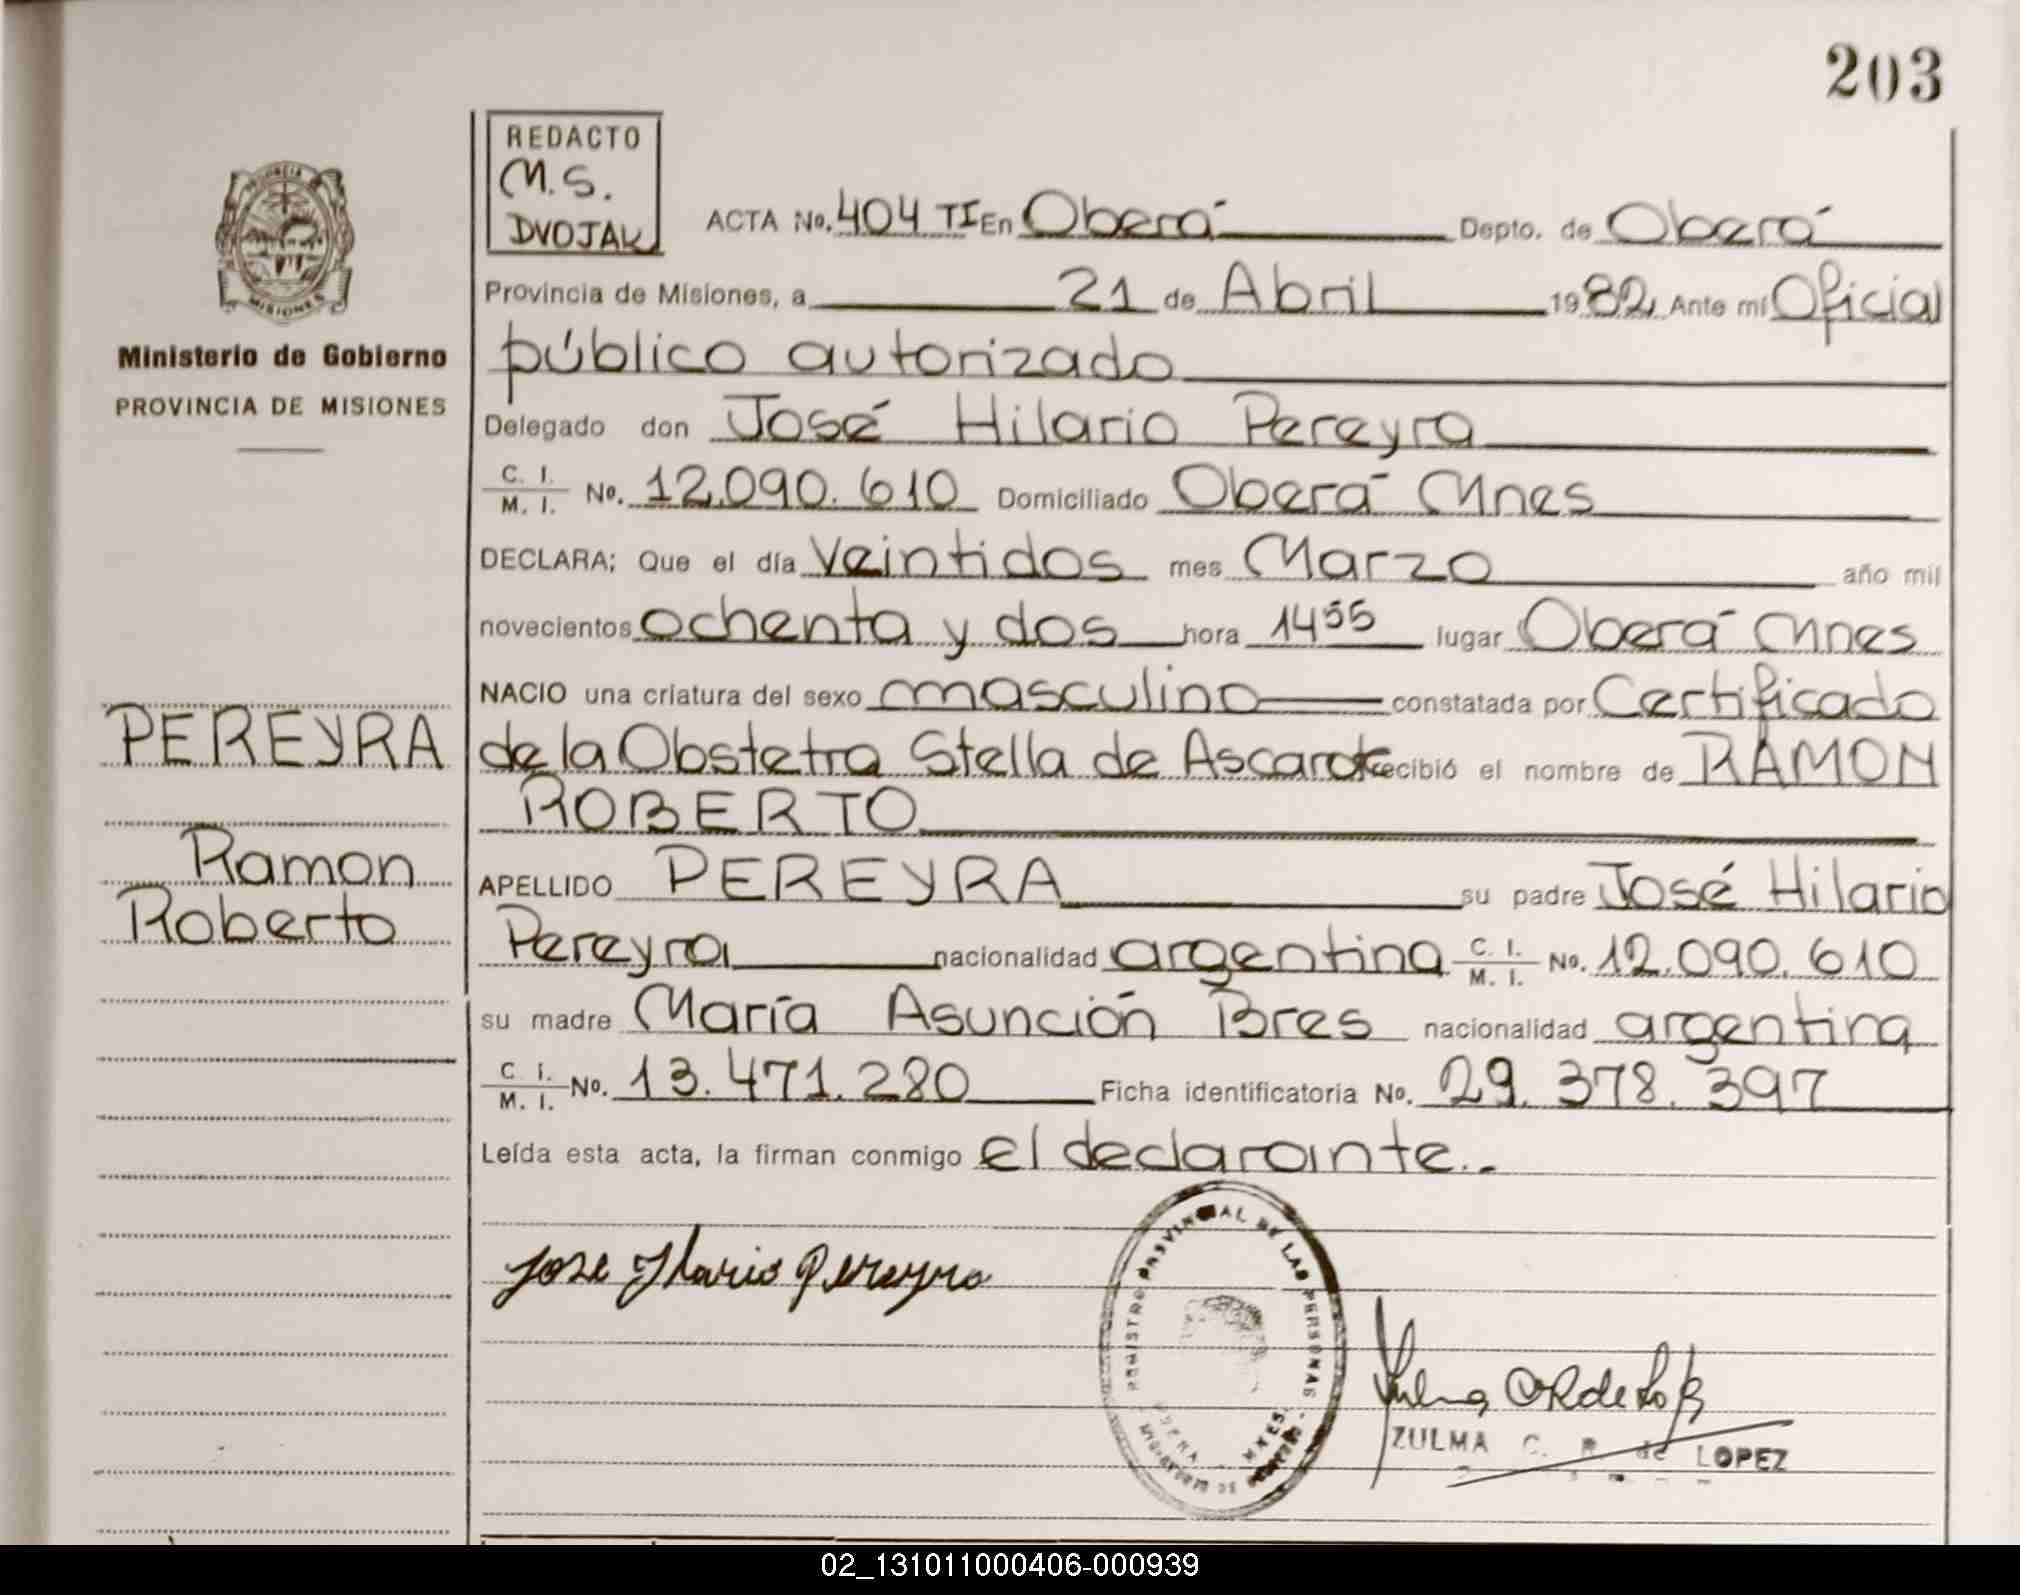 203
REDACTO
M.S.
DVOJAK
ACTA No. 404 TI En Oberá Depto. de Oberá
Provincia de Misiones, a 21 de Abril 1982, Ante mí Oficial
público autorizado
Delegado don José Hilario Pereyra
C. I. M. I. No. 12.090.610 Domiciliado Oberá Mnes
DECLARA; Que el día Veintidos mes Marzo año mil
novecientos ochenta y dos hora 1455 lugar Oberá Mnes
NACIO una criatura del sexo masculino constatada por Certificado
de la Obstetra Stella de Ascarate recibió el nombre de RAMON
ROBERTO
APELLIDO PEREYRA su padre José Hilario
Pereyra nacionalidad argentina C. I. M. I. No. 12.090.610
su madre María Asunción Bres nacionalidad argentina
C. I. M. I. No. 13.471.280 Ficha identificatoria No. 29.378.397
Leída esta acta, la firman conmigo el declarante.-
PROVINCIA DE
MISIONES
Ministerio de Gobierno
PROVINCIA DE MISIONES
PEREYRA
Ramon
Roberto
Jose Ilario Pereyra
REGISTRO PROVINCIAL DE LAS PERSONAS
OBERA - MNES.
ZULMA C. R. de LOPEZ
02_131011000406-000939